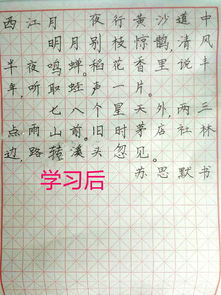 西江月 夜行黄沙道中
明月别枝惊鹊,清风
半夜鸣蝉。稻花香里说丰
年,听取蛙声一片。
七八个星天外,两三
点雨山前。旧时茅店社林
边,路转溪头忽见。
苏思默书
学习后